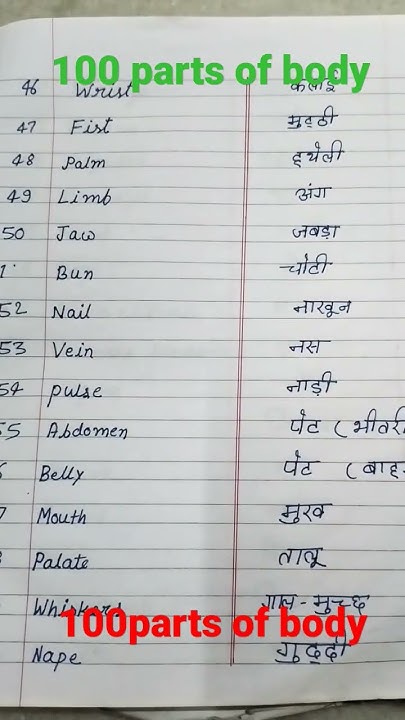 100 parts of body
46 Wrist कलाई
47 Fist मुट्ठी
48 Palm हथेली
49 Limb अंग
50 Jaw जबड़ा
Bun चोटी
52 Nail नाखून
53 Vein नस
54 pulse नाड़ी
55 Abdomen पेट (भीतरी
Belly पेट (बाह
Mouth मुख
Palate तालू
Whiskers गाल-मुच्छ
100parts of body
Nape गुद्दी